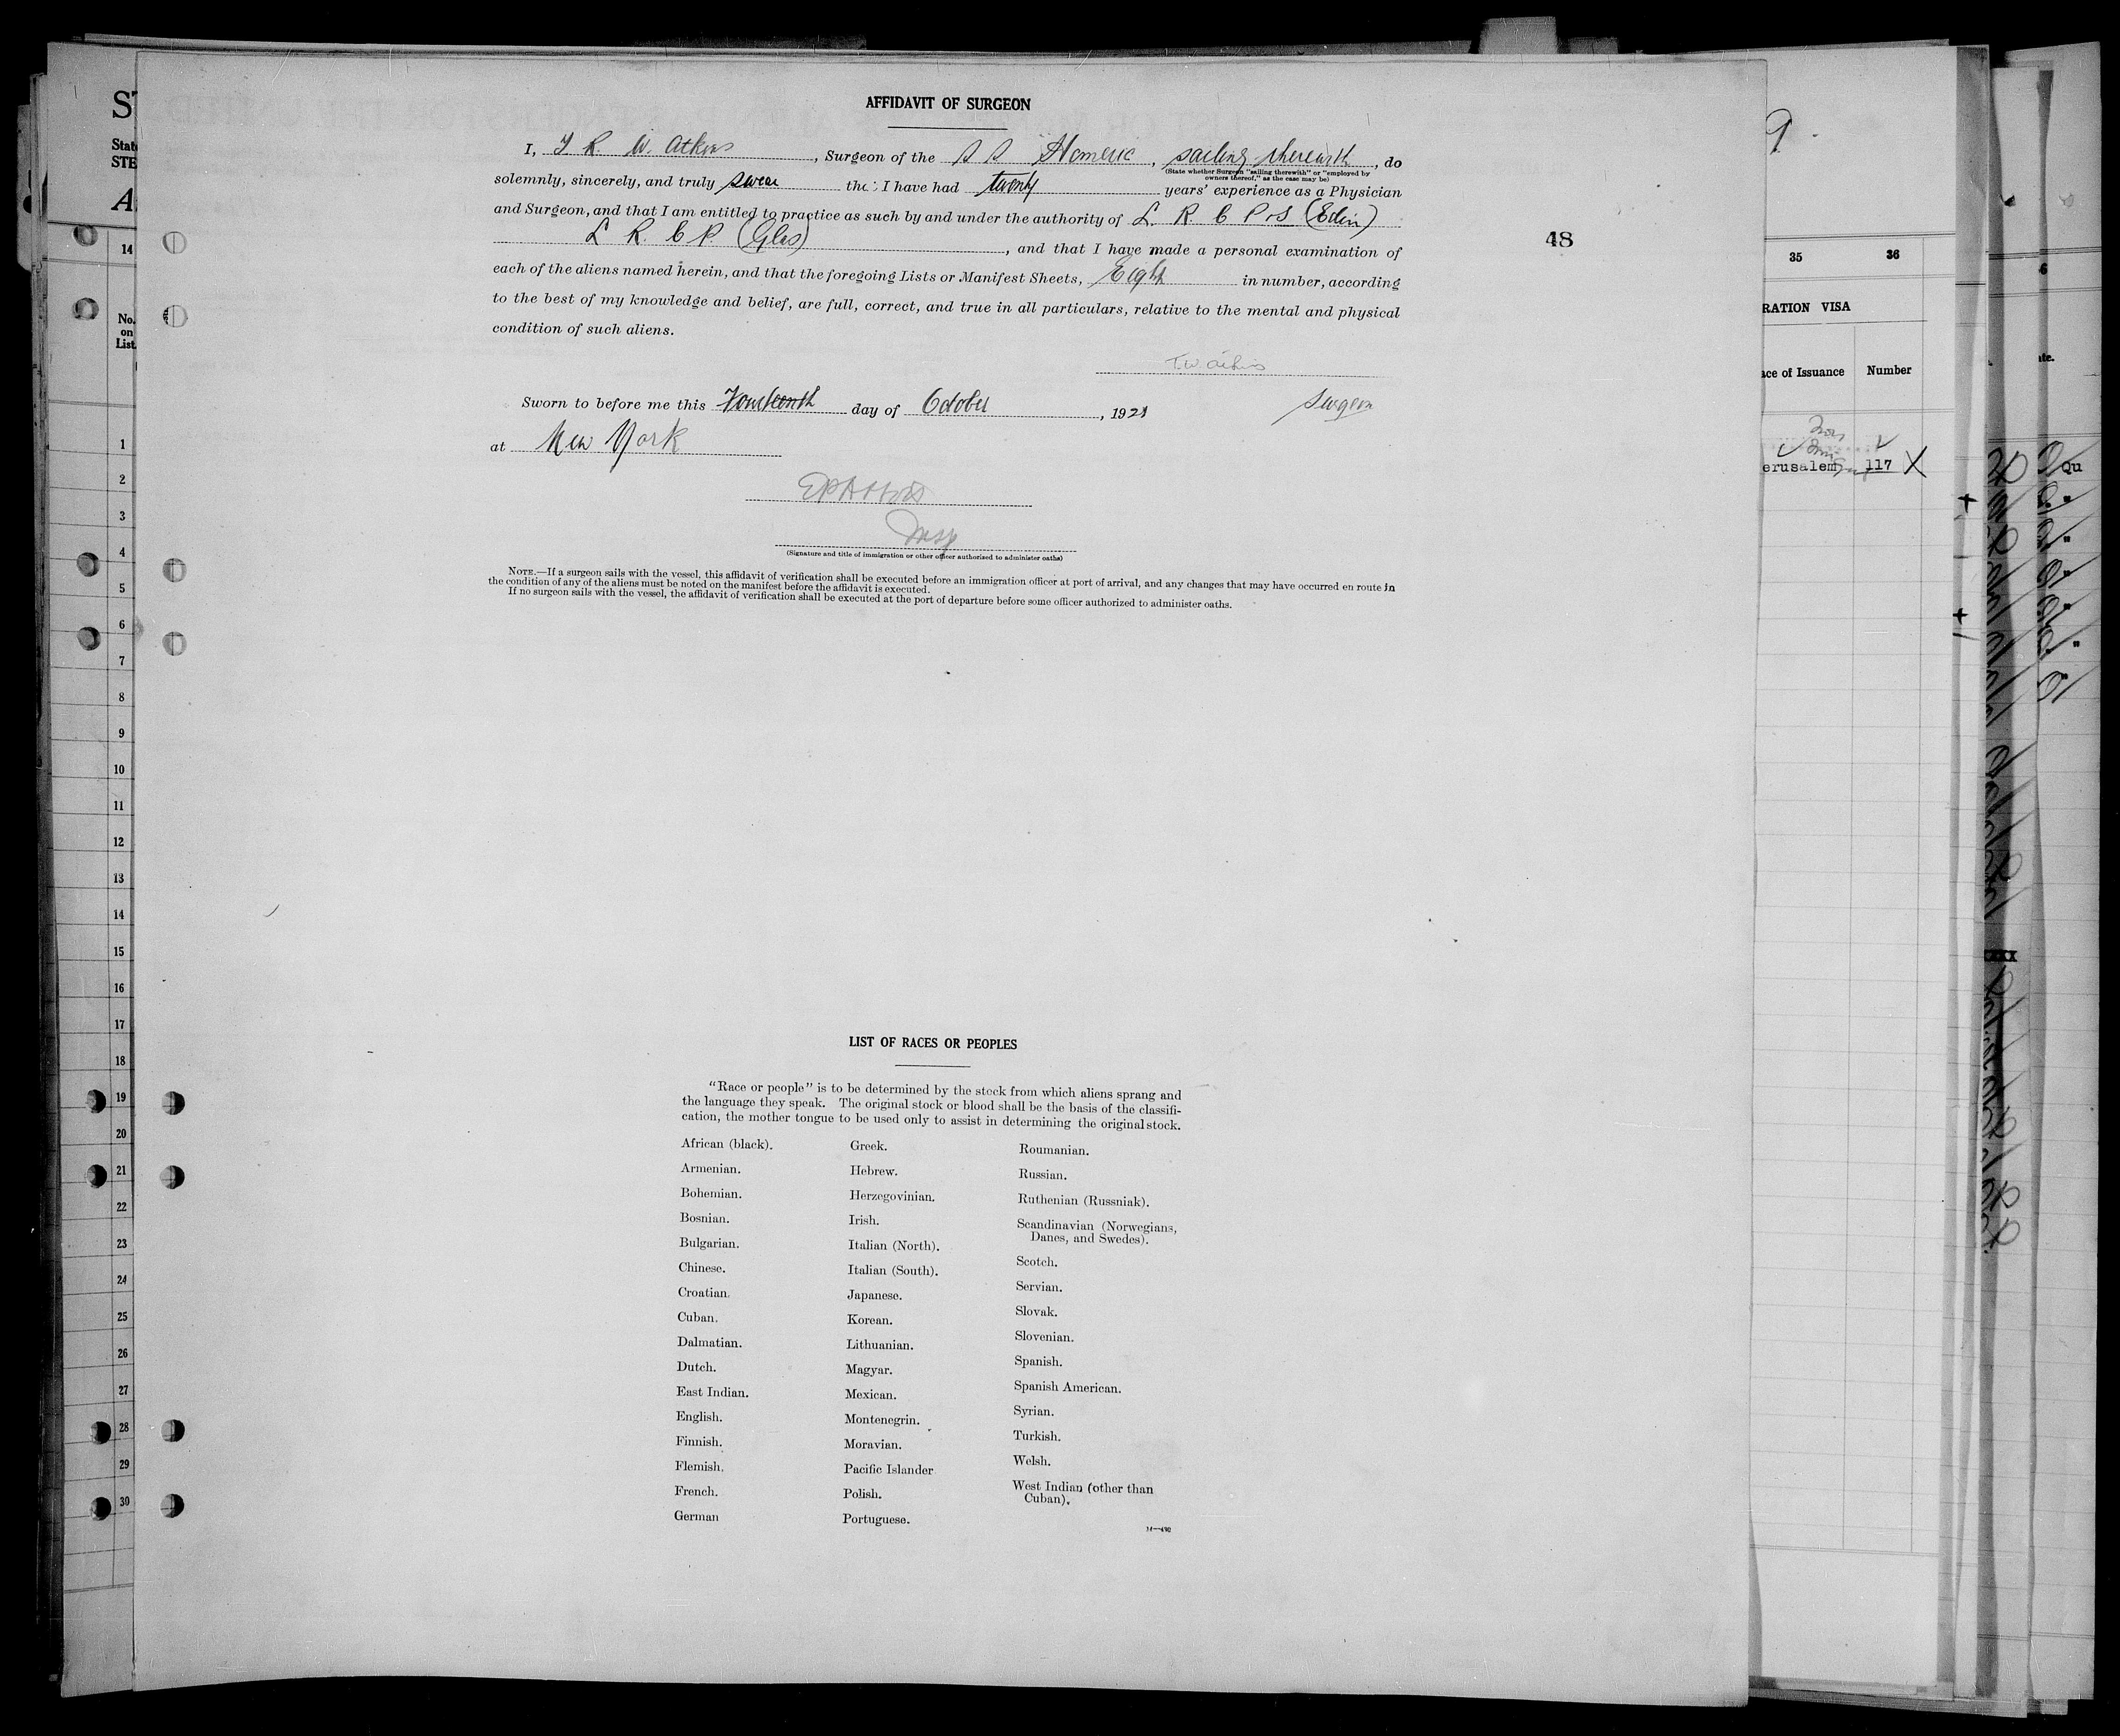 AFFIDAVIT OF SURGEON
I, T R. W. Atkins, Surgeon of the S S Homeric, sailing therewith, do
(State whether Surgeon "sailing therewith" or "employed by
owners thereof," as the case may be)
solemnly, sincerely, and truly swear that I have had twenty years' experience as a Physician
and Surgeon, and that I am entitled to practice as such by and under the authority of L. R. C P & S (Edin)
L R. C P. (Glas), and that I have made a personal examination of
each of the aliens named herein, and that the foregoing Lists or Manifest Sheets, Eight in number, according
to the best of my knowledge and belief, are full, correct, and true in all particulars, relative to the mental and physical
condition of such aliens.
Surgeon
Sworn to before me this Fourteenth day of October, 192
at New York
Insp
(Signature and title of immigration or other officer authorized to administer oaths)
NOTE.—If a surgeon sails with the vessel, this affidavit of verification shall be executed before an immigration officer at port of arrival, and any changes that may have occurred en route in
the condition of any of the aliens must be noted on the manifest before the affidavit is executed.
If no surgeon sails with the vessel, the affidavit of verification shall be executed at the port of departure before some officer authorized to administer oaths.
48
LIST OF RACES OR PEOPLES
"Race or people" is to be determined by the stock from which aliens sprang and
the language they speak. The original stock or blood shall be the basis of the classifi-
cation, the mother tongue to be used only to assist in determining the original stock.
African (black).
Armenian.
Bohemian.
Bosnian.
Bulgarian.
Chinese.
Croatian.
Cuban.
Dalmatian.
Dutch.
East Indian.
English.
Finnish.
Flemish.
French.
German
Greek.
Hebrew.
Herzegovinian.
Irish.
Italian (North).
Italian (South).
Japanese.
Korean.
Lithuanian.
Magyar.
Mexican.
Montenegrin.
Moravian.
Pacific Islander
Polish.
Portuguese.
Roumanian.
Russian.
Ruthenian (Russniak).
Scandinavian (Norwegians,
Danes, and Swedes).
Scotch.
Servian.
Slovak.
Slovenian.
Spanish.
Spanish American.
Syrian.
Turkish.
Welsh.
West Indian (other than
Cuban).
ST
State
STE
A
14
No.
on
List.
1
2
3
4
5
6
7
8
9
10
11
12
13
14
15
16
17
18
19
20
21
22
23
24
25
26
27
28
29
30
9
35
36
RATION VISA
ace of Issuance
Number
erusalem
117 X
6
ate.
Qu